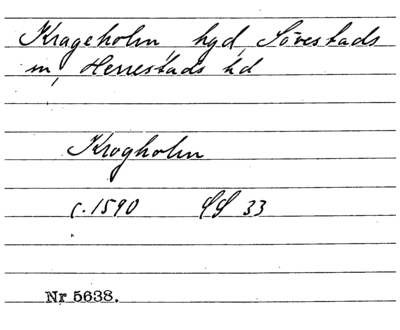 Krageholm, hgd, Sövestads
sn, Herrestads hd
Krogholm
c. 1590 SS 33
Nr 5638.